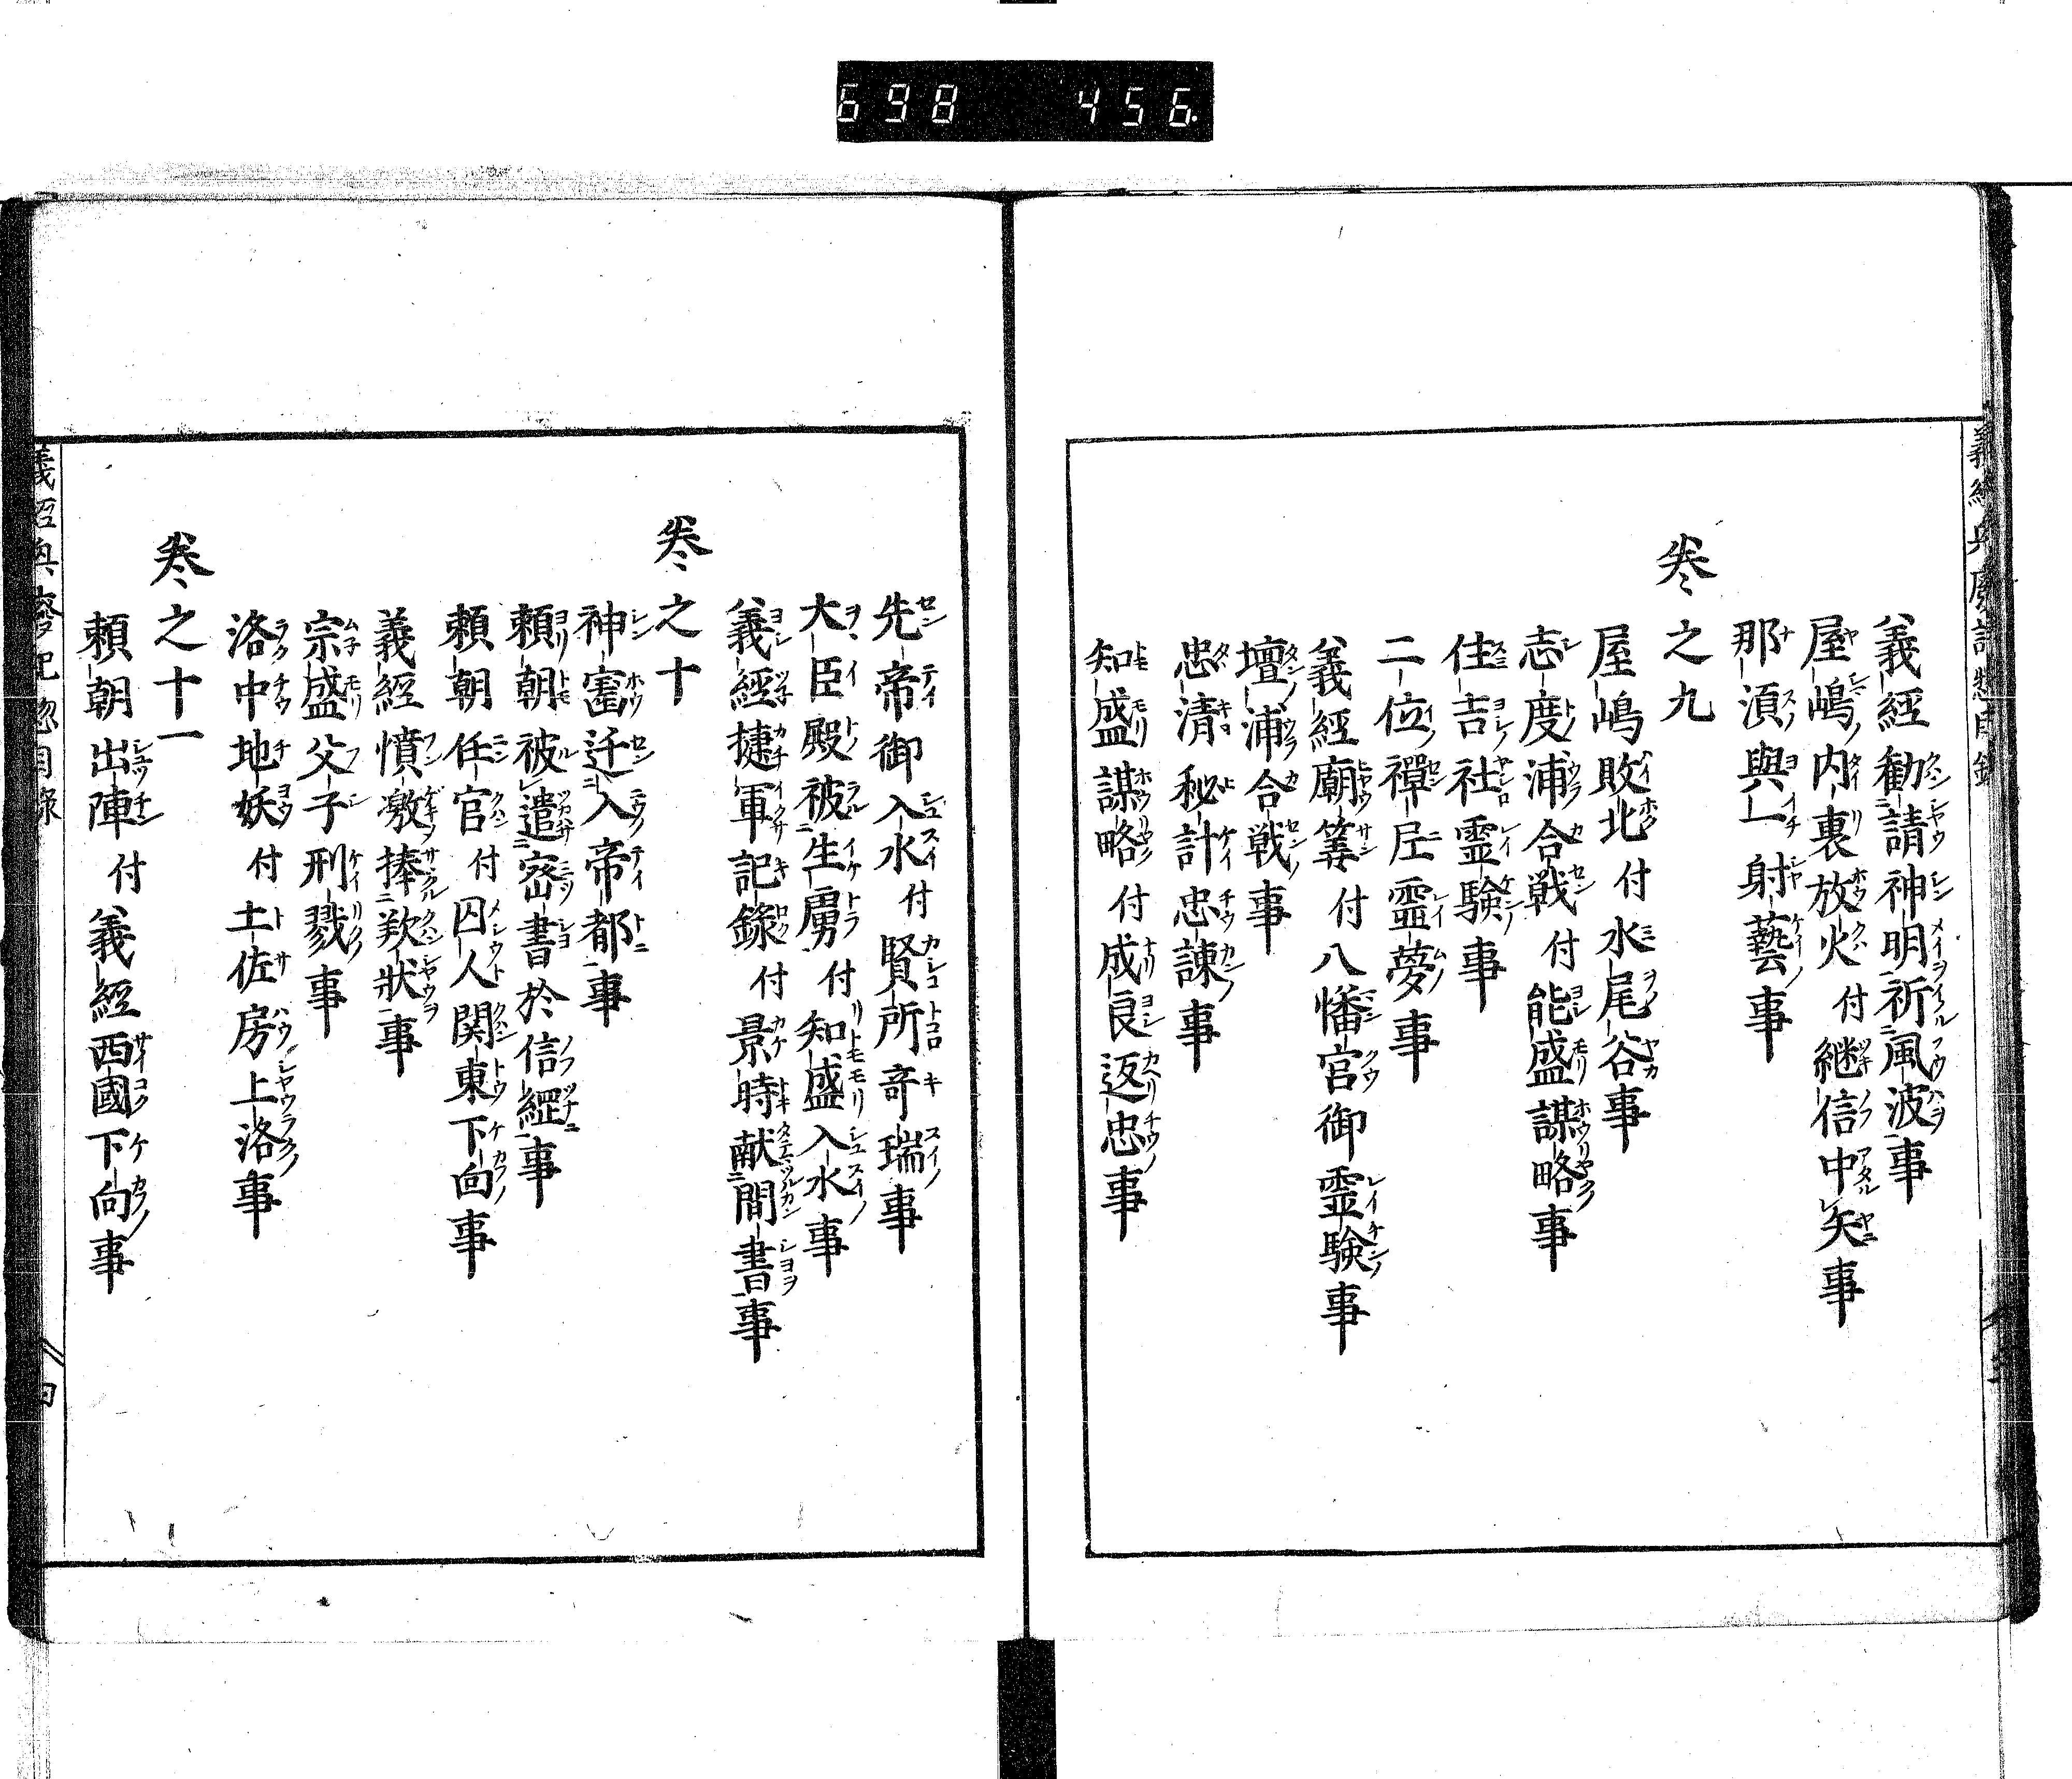 698 456
義經勧請神明祈風波事
屋嶋内裏放火付継信中矢事
那須與一射藝事
巻之九
屋嶋敗北付水尾谷事
志度浦合戦付能盛謀略事
住吉社霊験事
二位禪尼靈夢事
義經廟筭付八幡宮御霊験事
壇浦合戦事
忠清秘計忠諌事
知盛謀略付成良返忠事
先帝御入水付賢所竒瑞事
大臣殿被生虜付知盛入水事
義經捷軍記録付景時献間書事
巻之十
神寳迁入帝都事
頼朝被遣密書於信綱事
頼朝任官付囚人関東下向事
義經憤激捧歎状事
宗盛父子刑戮事
洛中地妖付土佐房上洛事
巻之十一
頼朝出陣付義經西國下向事